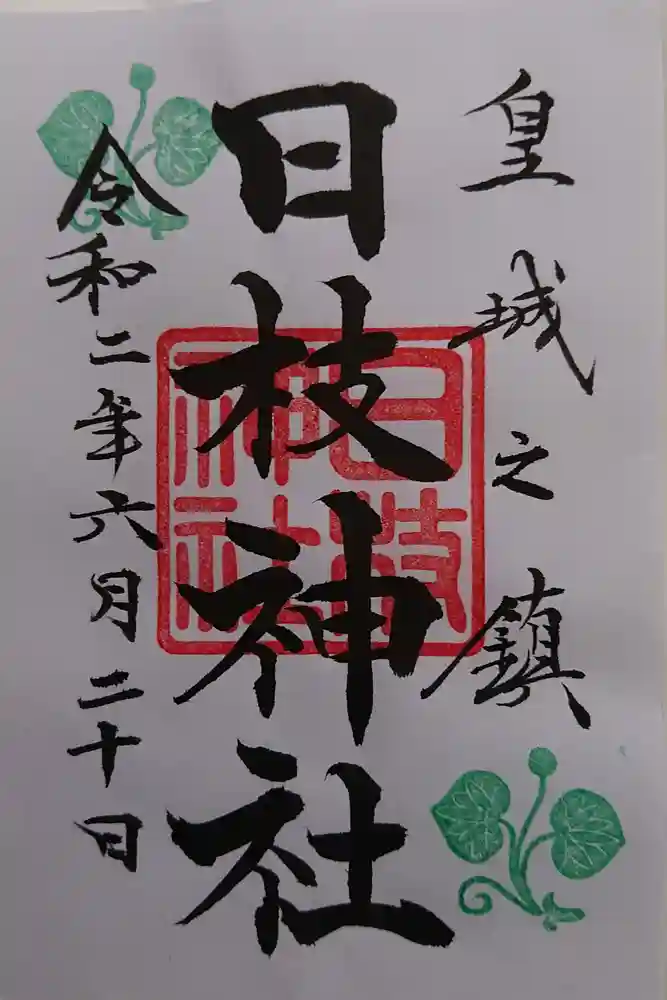 皇城之鎮
日枝神社
日枝
神社
令和二年六月二十日